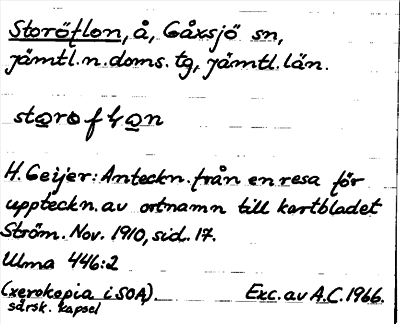 Storöflon, å, Gåxsjö sn,
jämtl.n.doms.tg, jämtl.län.
H. Geijer: Anteckn. från en resa för
uppteckn. av ortnamn till kartbladet
Ström. Nov. 1910, sid. 17.
Ulma 446:2
(xerokopia i SOA). Exc. av A.C. 1966.
särsk. kapsel